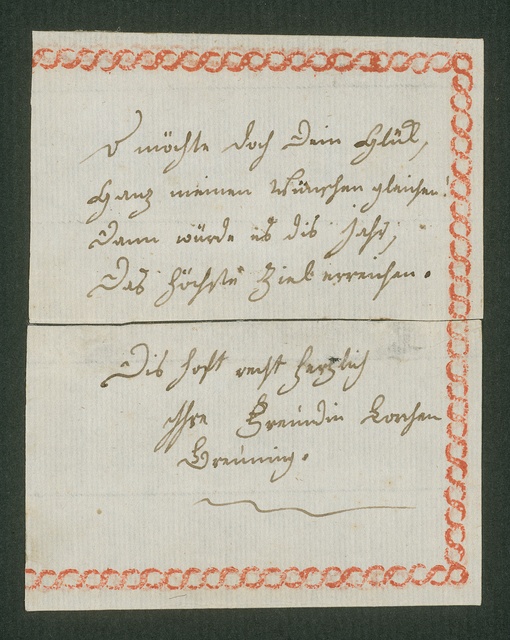 O möchte doch Dein Glük,
Ganz meinen Wünschen gleichen!
Dann würde es dis Jahr,
Das höchste Ziel erreichen.
Dis hoft recht herzlich
Ihre Freundin Lorchen
Breuning.